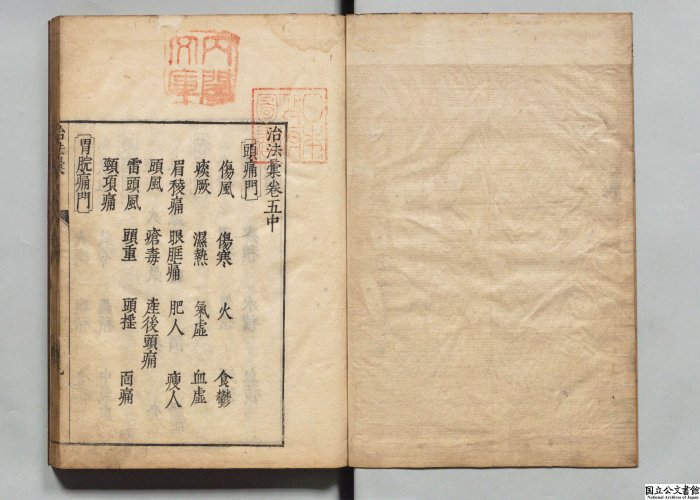 治法彙卷五中
頭痛門
傷風 傷寒 火 食鬱
痰厥 濕熱 氣虛 血虛
眉稜痛 眼眶痛 肥人 瘦人
頭風 瘡毒 產後頭痛
雷頭風 頭重 頭搖 面痛
頸項痛
胃脘痛門
治法彙
內閣文庫
日本政府圖書
国立公文書館
National Archives of Japan